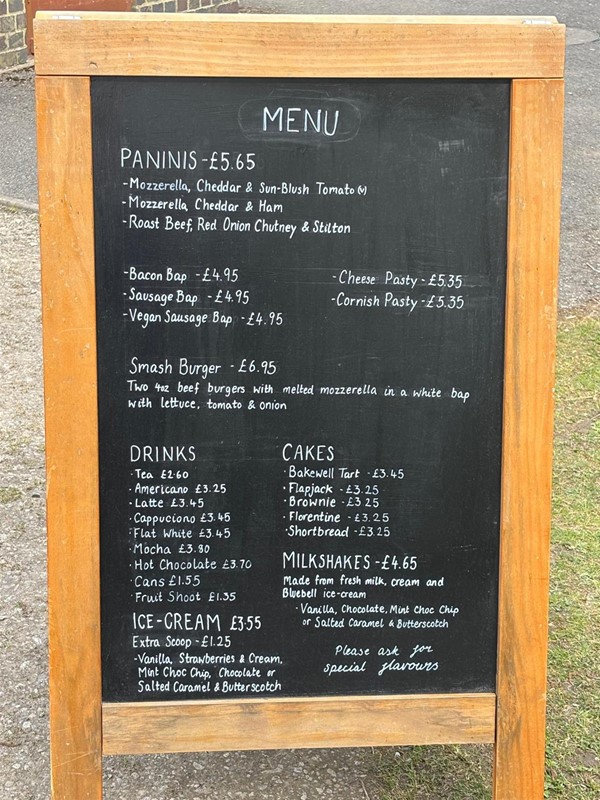 MENU
PANINIS - £5.65
- Mozzerella, Cheddar & Sun-Blush Tomato (v)
- Mozzerella, Cheddar & Ham
- Roast Beef, Red Onion Chutney & Stilton
- Bacon Bap - £4.95
- Sausage Bap - £4.95
- Vegan Sausage Bap - £4.95
- Cheese Pasty - £5.35
- Cornish Pasty - £5.35
Smash Burger - £6.95
Two 4oz beef burgers with melted mozzerella in a white bap
with lettuce, tomato & onion
DRINKS
· Tea £2.60
· Americano £3.25
· Latte £3.45
· Cappuciono £3.45
· Flat White £3.45
· Mocha £3.80
· Hot Chocolate £3.70
· Cans £1.55
· Fruit Shoot £1.35
ICE-CREAM £3.55
Extra Scoop - £1.25
- Vanilla, Strawberries & Cream,
Mint Choc Chip, Chocolate or
Salted Caramel & Butterscotch
CAKES
· Bakewell Tart - £3.45
· Flapjack - £3.25
· Brownie - £3.25
· Florentine - £3.25
· Shortbread - £3.25
MILKSHAKES - £4.65
Made from fresh milk, cream and
Bluebell ice-cream
· Vanilla, Chocolate, Mint Choc Chip
or Salted Caramel & Butterscotch
Please ask for
special flavours